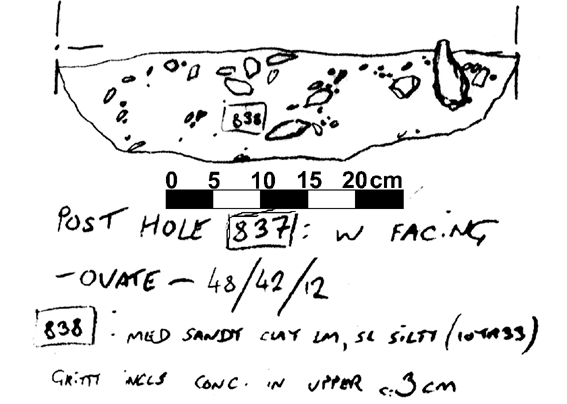 838
0 5 10 15 20cm
POST HOLE 837: W FACING
- OVATE - 48/42/12
838 : MED SANDY CLAY LM, SL SILTY (10YR33)
GRITTY INCLS CONC. IN UPPER c.3cm